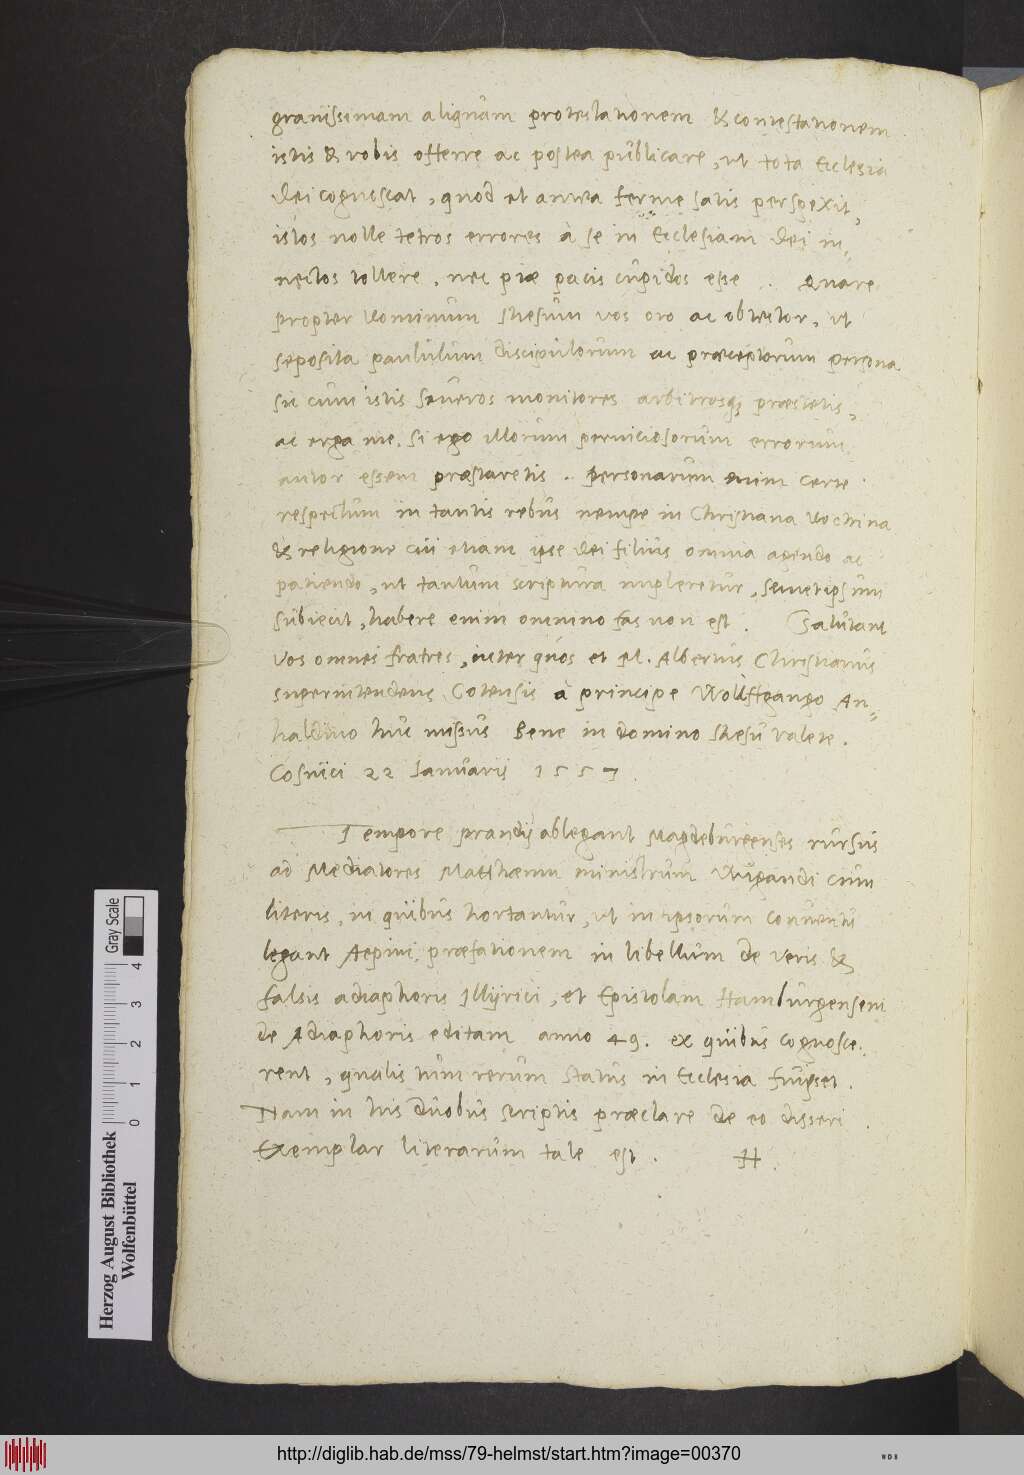 grauissimam aliquam protestationem & contestationem
istis & vobis offerre ac postea publicare, ut tota Ecclesia
Dei cognoscat, quod et antea ferme satis perspexit,
istos nolle tetros errores à se in Ecclesiam Dei in-
uectos tollere, nec piae pacis cupidos esse. Quare
propter Dominum Ihesum vos oro ac obtestor, ut
seposita paululum discipulorum ac praeceptorum persona
sic cum istis seueros monitores arbitrosq; praestetis,
ac erga me, si ego illorum perniciosorum errorum
autor essem praestaretis. Personarum enim certe
respectum in tantis rebus nempe in Christiana doctrina
& religione cui etiam ipse Dei filius omnia agendo ac
patiendo, ut tantum scriptura impleretur, semetipsum
subiecit, habere enim omnino fas non est. Salutant
vos omnes fratres, inter quos et M. Albertus Christianus
superintendens Cotensis à principe Wolffgango An-
haldino huc missus Bene in domino Ihesu valete.
Cosuici 22 Ianuarij 1557.
Tempore prandij ablegant Magdeburgenses rursus
ad Mediatores Matthaeum ministrum Wigandi cum
literis, in quibus hortantur, ut in ipsorum conuentu
legant Aepini praefationem in libellum de veris &
falsis adiaphoris Illyrici, et Epistolam Hamburgensem
de Adiaphoris editam anno 49. ex quibus cognosce-
rent, qualis tum rerum status in Ecclesia fuisset.
Nam in his duobus scriptis praeclare de eo disseri.
Exemplar literarum tale est. H.
Herzog August Bibliothek
Wolfenbüttel
Gray Scale
0 1 2 3 4
http://diglib.hab.de/mss/79-helmst/start.htm?image=00370
WDB